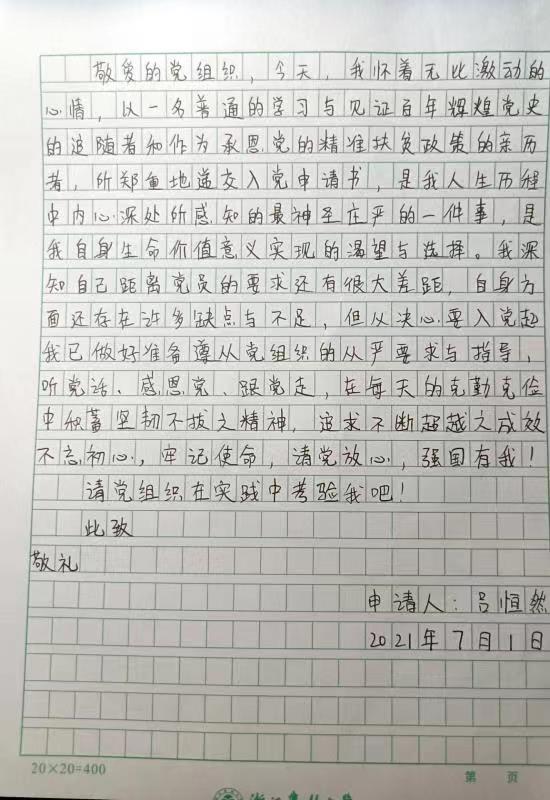 敬爱的党组织，今天，我怀着无比激动的
心情，以一名普通的学习与见证百年辉煌党史
的追随者和作为承恩党的精准扶贫政策的亲历
者，所郑重地递交入党申请书，是我人生历程
中内心深处所感知的最神圣庄严的一件事，是
我自身生命价值意义实现的渴望与选择。我深
知自己距离党员的要求还有很大差距，自身方
面还存在许多缺点与不足，但从决心要入党起
我已做好准备遵从党组织的从严要求与指导，
听党话、感恩党、跟党走，在每天的克勤克俭
中积蓄坚韧不拔之精神，追求不断超越之成效
不忘初心，牢记使命，请党放心，强国有我！
请党组织在实践中考验我吧！
此致
敬礼
申请人：吕恒然
2021年7月1日
20×20=400
第 页